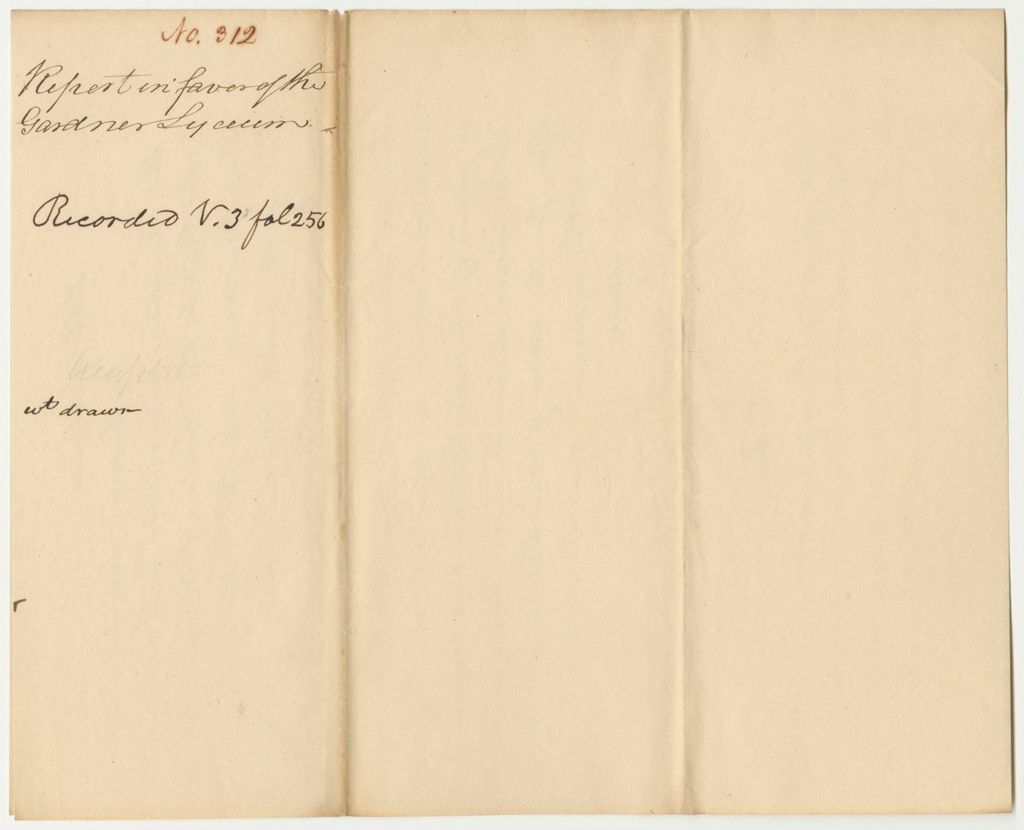 No. 312
Report in favor of the
Gardner Lyceum
Recorded V. 3 fol 256
wt drawn